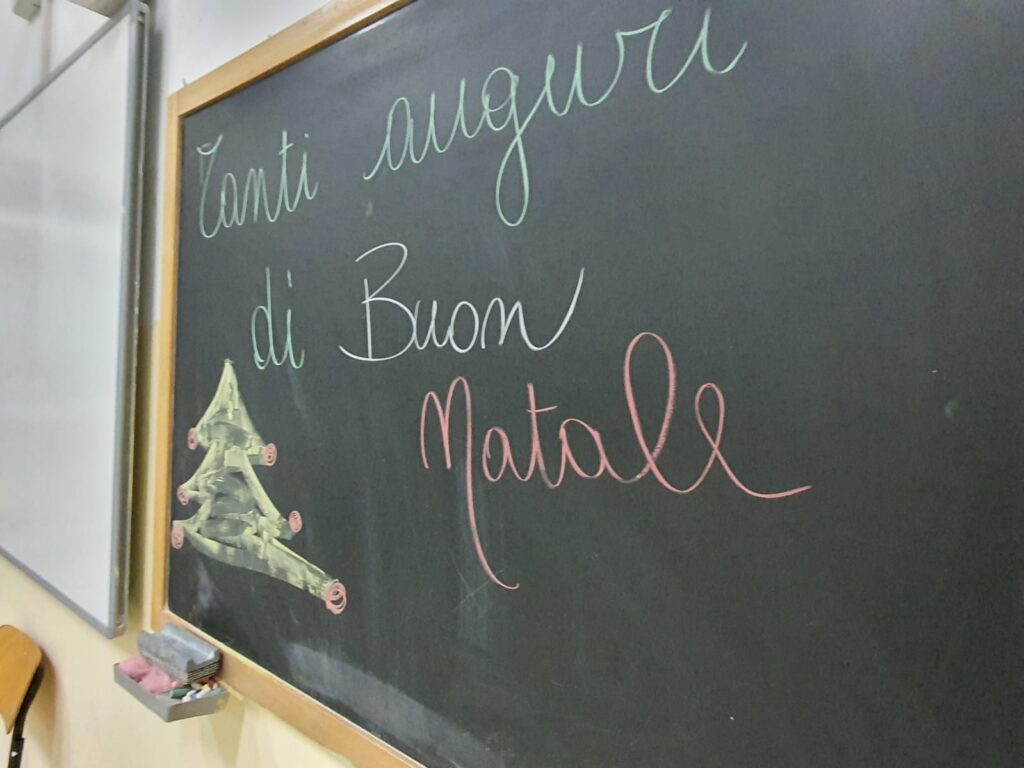 Tanti auguri
di Buon
Natale